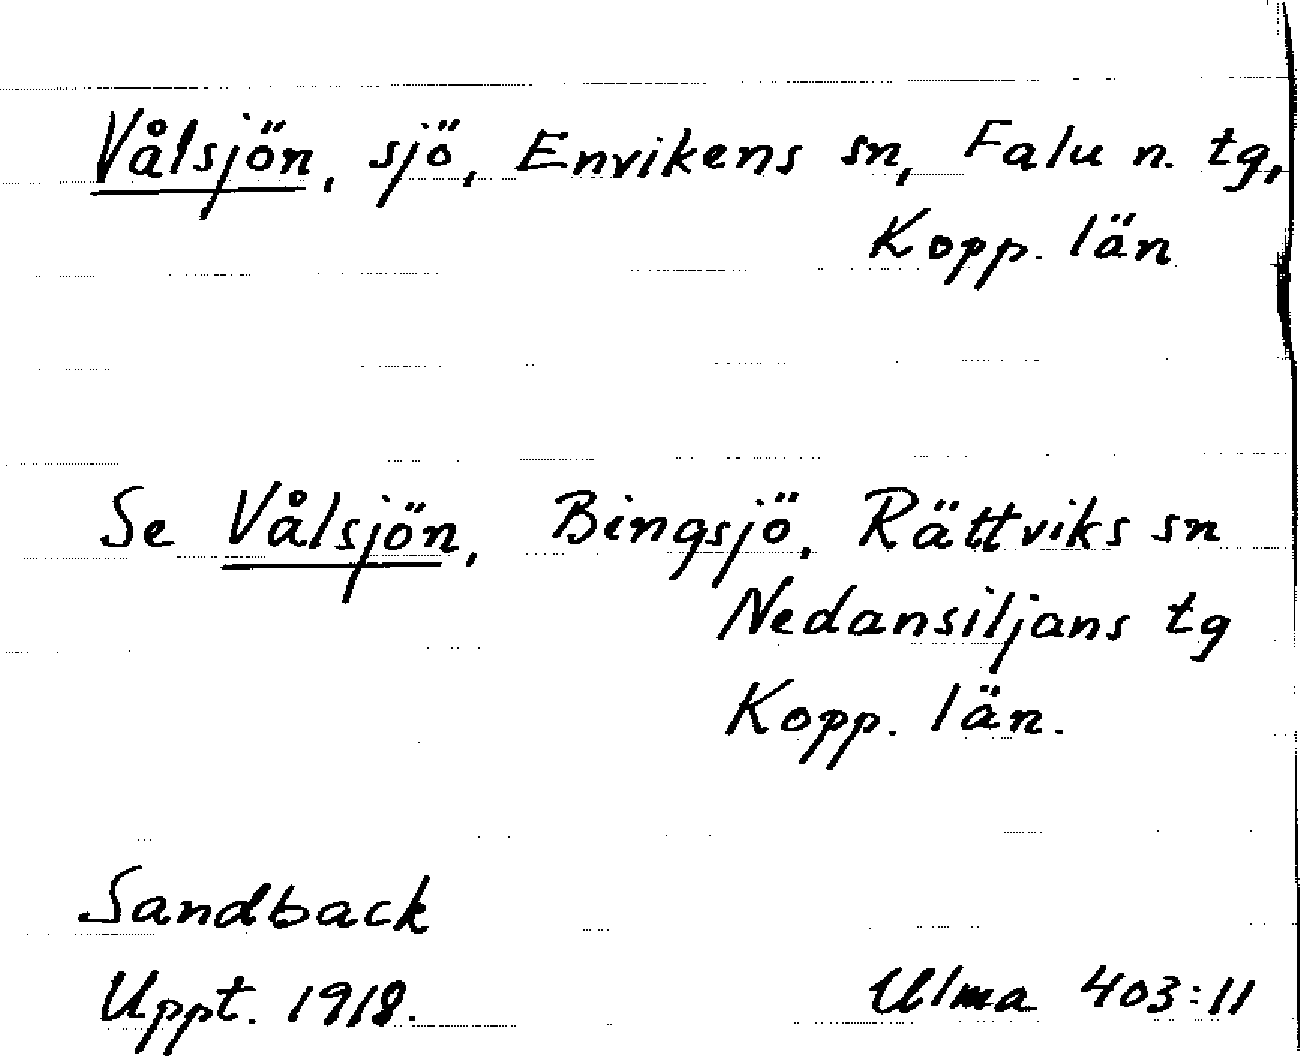 Vålsjön, sjö, Envikens sn, Falu n. tg,
Kopp. län
Se Vålsjön, Bingsjö, Rättviks sn
Nedansiljans tg
Kopp. län.
Sandback
Uppt. 1918. Ulma 403:11